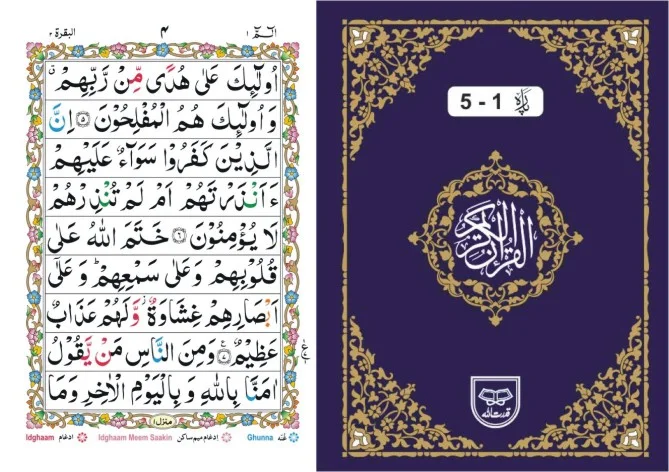 البقرة ٢
٤
الٓمّٓ ١
اُولٰٓئِكَ عَلٰى هُدًى مِّنْ رَّبِّهِمْ ۗ
وَ اُولٰٓئِكَ هُمُ الْمُفْلِحُوْنَ ۝٥ اِنَّ
الَّذِيْنَ كَفَرُوْا سَوَآءٌ عَلَيْهِمْ
ءَاَنْذَرْتَهُمْ اَمْ لَمْ تُنْذِرْهُمْ
لَا يُؤْمِنُوْنَ ۝٦ خَتَمَ اللّٰهُ عَلٰى
قُلُوْبِهِمْ وَعَلٰى سَمْعِهِمْ ؕ وَ عَلٰٓى
اَبْصَارِهِمْ غِشَاوَةٌ ۫ وَّلَهُمْ عَذَابٌ
عَظِيْمٌ ۝٧ وَمِنَ النَّاسِ مَنْ يَّقُوْلُ
اٰمَنَّا بِاللّٰهِ وَ بِالْيَوْمِ الْاٰخِرِ وَمَا
منزل ١
Idghaam ادغام
Idghaam Meem Saakin ادغام میم ساکن
Ghunna غنّہ
پارہ 1 - 5
القرآن الكريم
قدرت الله